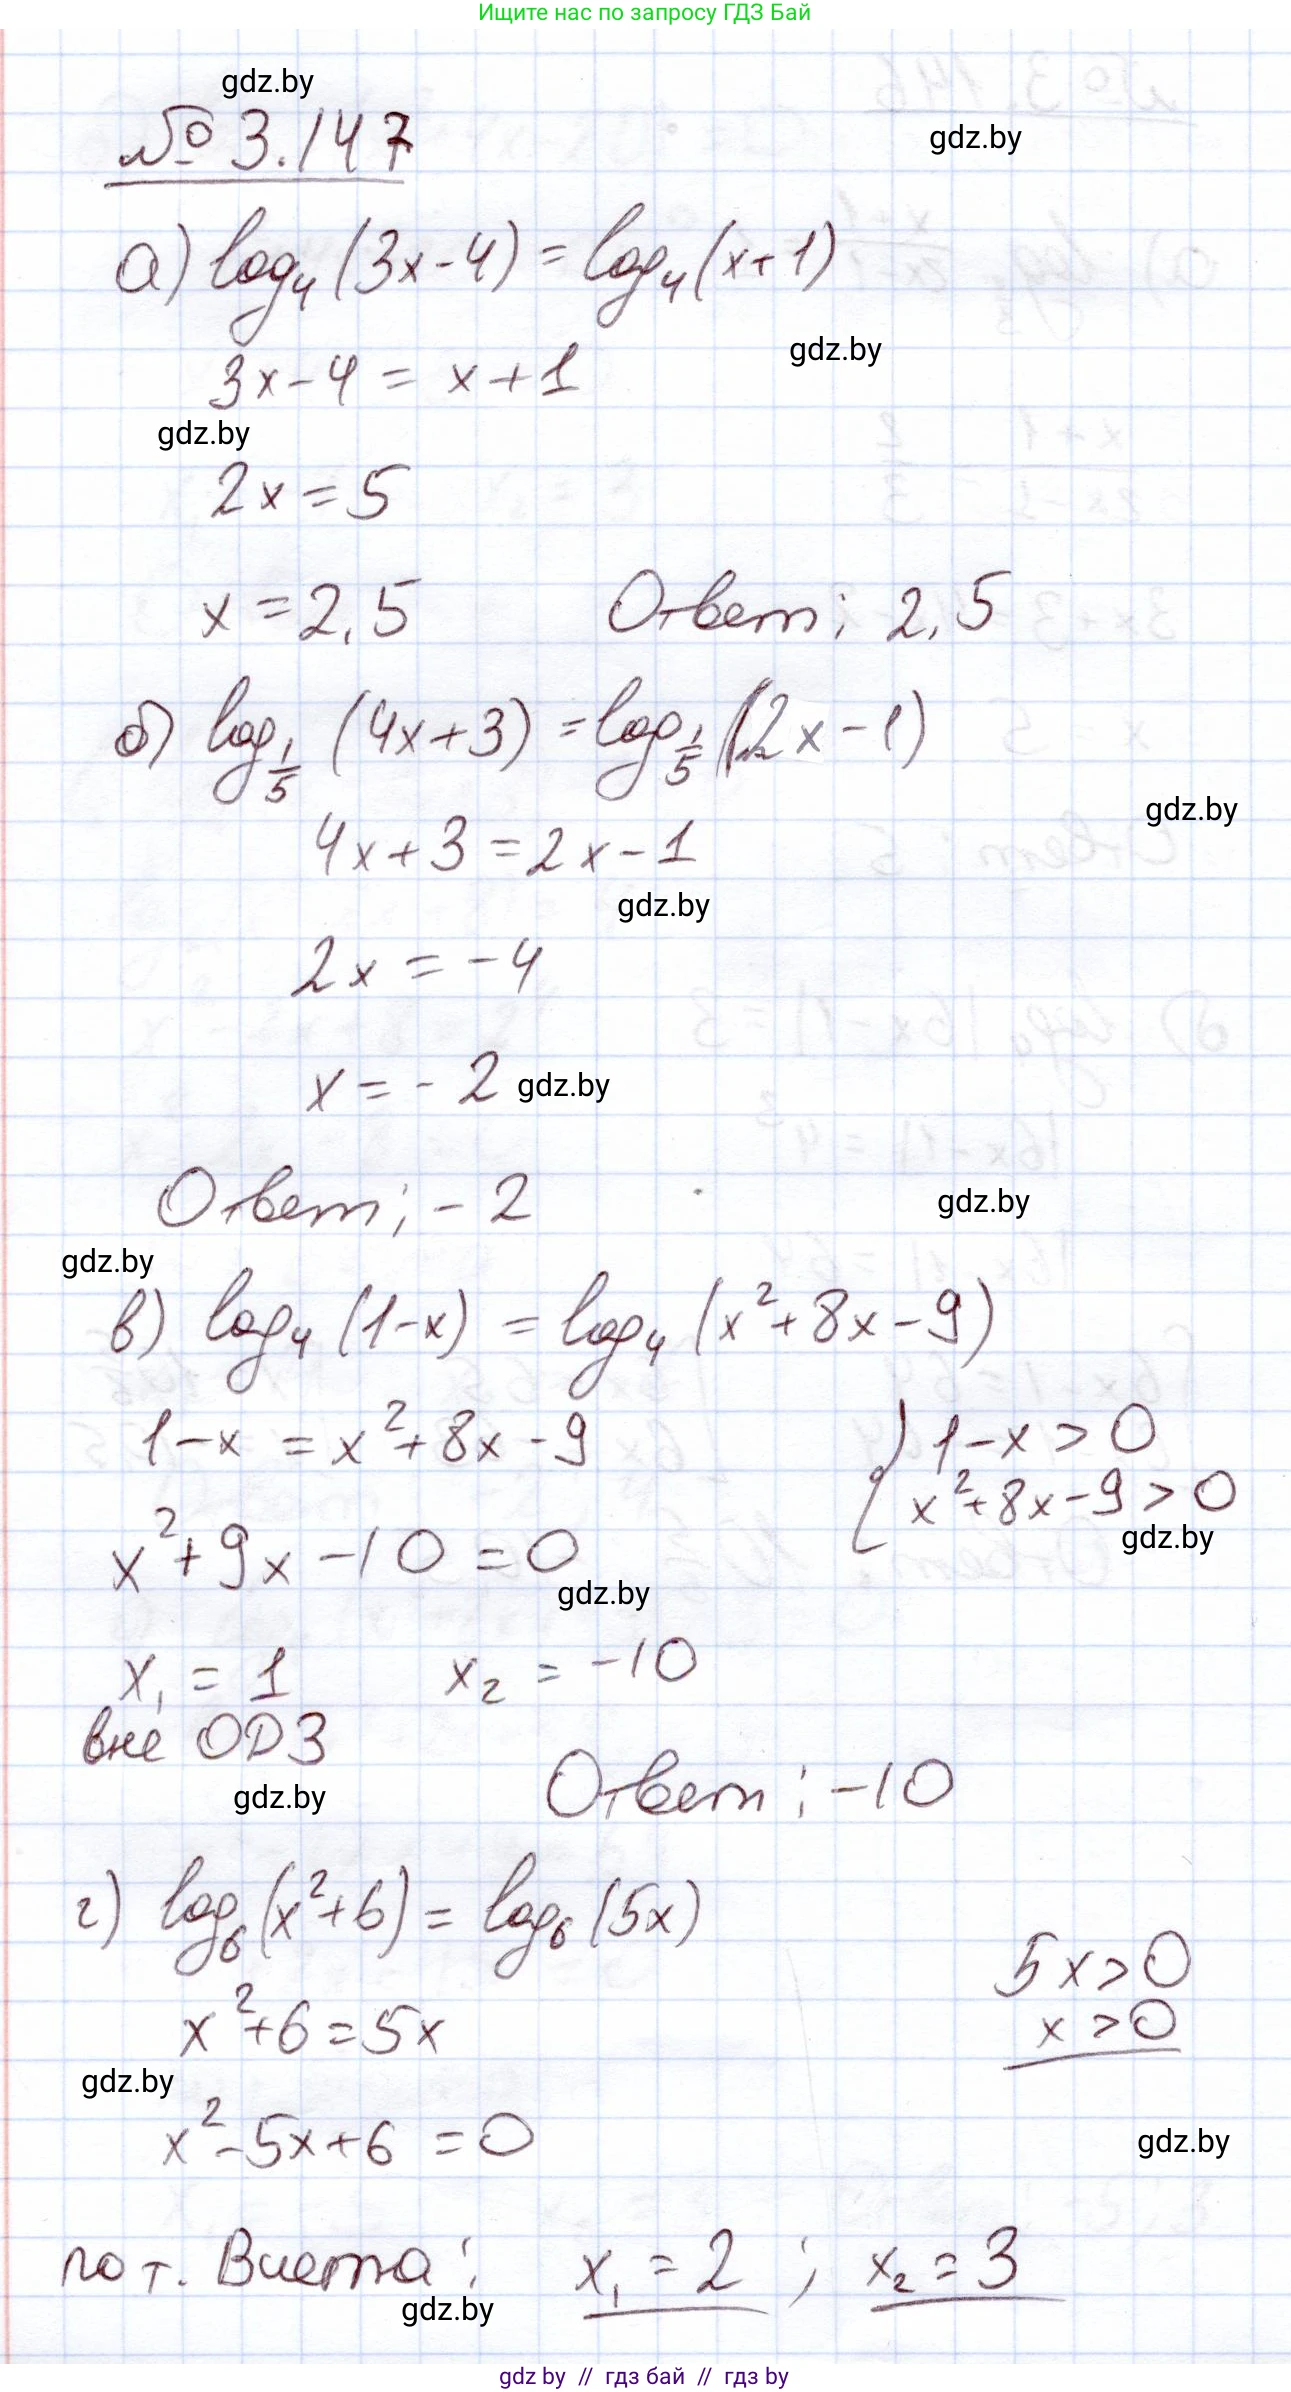 Ищите нас по запросу ГДЗ Бай
gdz.by
№ 3.147
gdz.by
а) log₄(3x-4) = log₄(x+1)
gdz.by
3x-4 = x+1
gdz.by
2x = 5
x = 2,5 Ответ: 2,5
б) log_{1/5} (4x+3) = log_{1/5} (2x-1)
gdz.by
4x+3 = 2x-1
gdz.by
2x = -4
x = -2 gdz.by
Ответ: -2
gdz.by
gdz.by
в) log₄(1-x) = log₄(x²+8x-9)
1-x = x²+8x-9 { 1-x > 0
x²+8x-9 > 0
gdz.by
x²+9x-10 = 0
gdz.by
x₁ = 1 x₂ = -10
вне ОДЗ
gdz.by
Ответ: -10
г) log₆(x²+6) = log₆(5x)
5x > 0
x²+6 = 5x
x > 0
gdz.by
x²-5x+6 = 0
gdz.by
по т. Виета: x₁ = 2 ; x₂ = 3
gdz.by
gdz by // гдз бай // гдз by